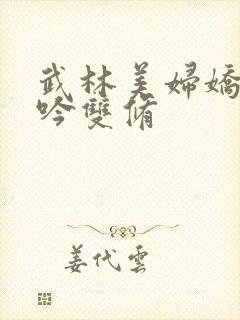 武林美婦嬌
吟雙脩
姜代雲